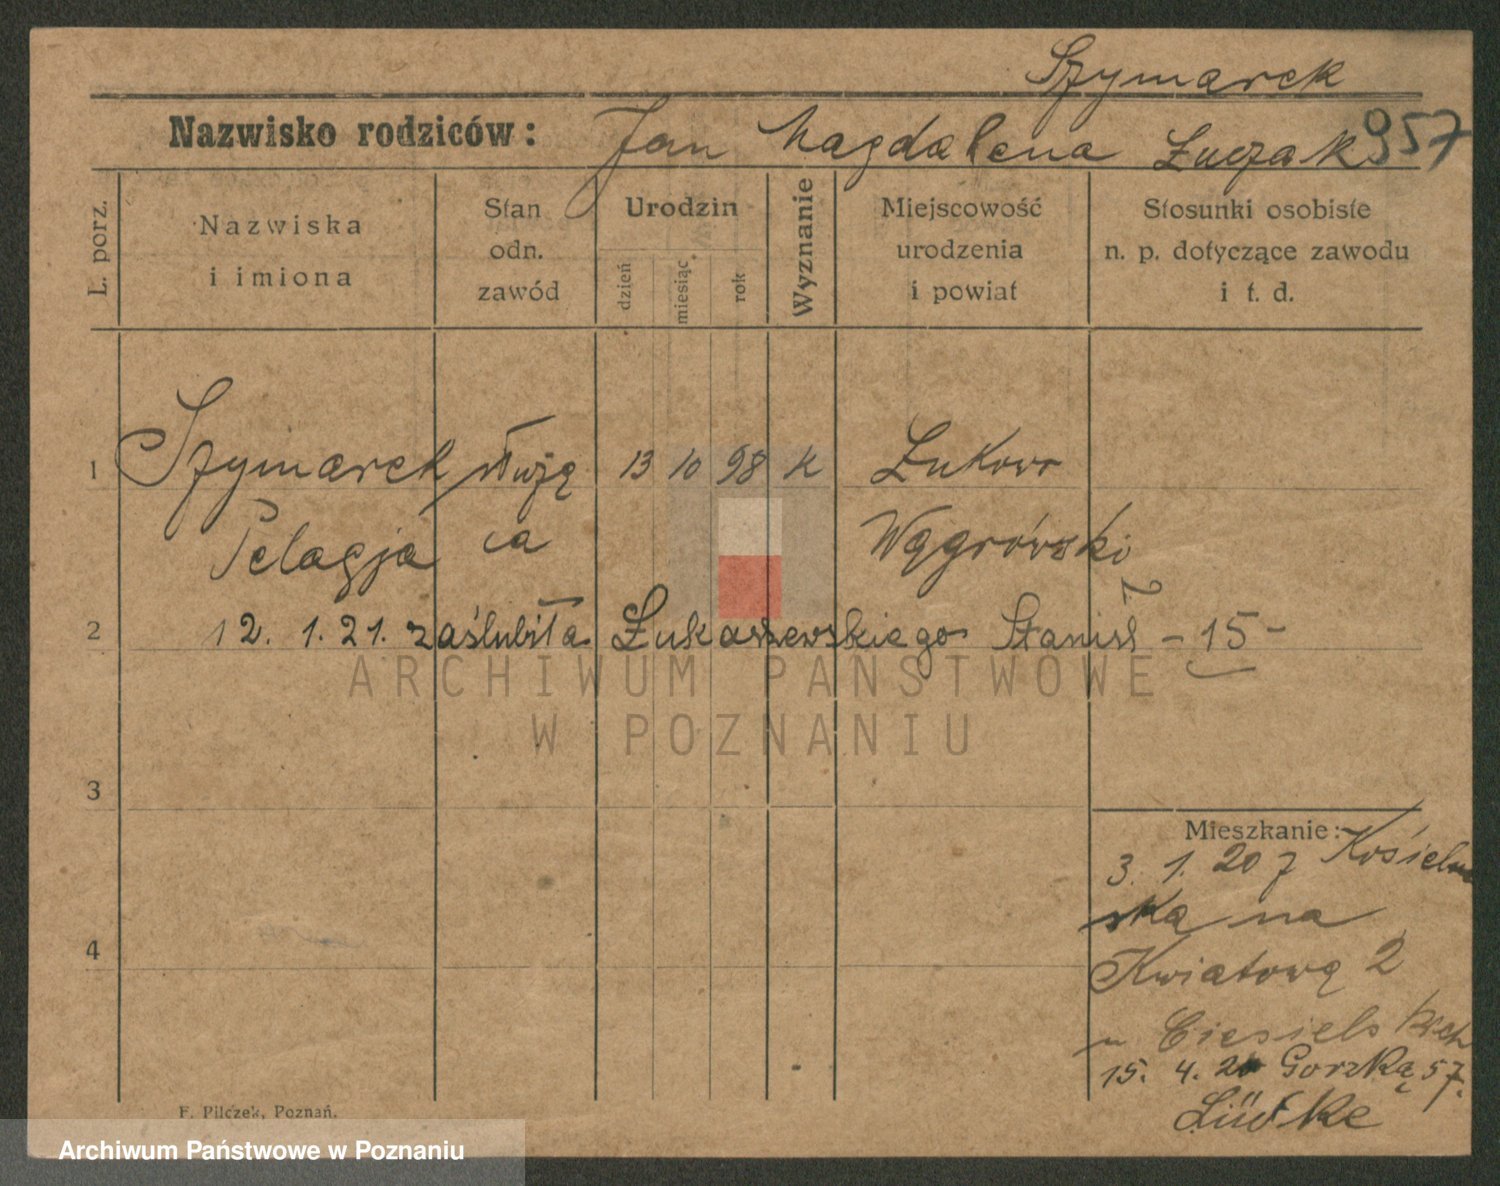 Szymarek
Nazwisko rodziców: Jan Magdalena Łuczak 957
L. porz.
Nazwiska
i imiona
Stan
odn.
zawód
Urodzin
dzień
miesiąc
rok
Wyznanie
Miejscowość
urodzenia
i powiat
Stosunki osobiste
n. p. dotyczące zawodu
i t. d.
1 Szymarek służą 13 10 98 k Łukowo
Pelagja ca Wągrówski
2 12. 1. 21. zaślubiła Łukaszewskiego Stanisł - 15 -
ARCHIWUM PAŃSTWOWE
W POZNANIU
3
Mieszkanie:
3. 1. 20 z Kościeln
ską na
4
Kwiatową 2
u Ciesielskich
15. 4. 20 Gorzką 57.
Lüdke
F. Pilczek, Poznań.
Archiwum Państwowe w Poznaniu